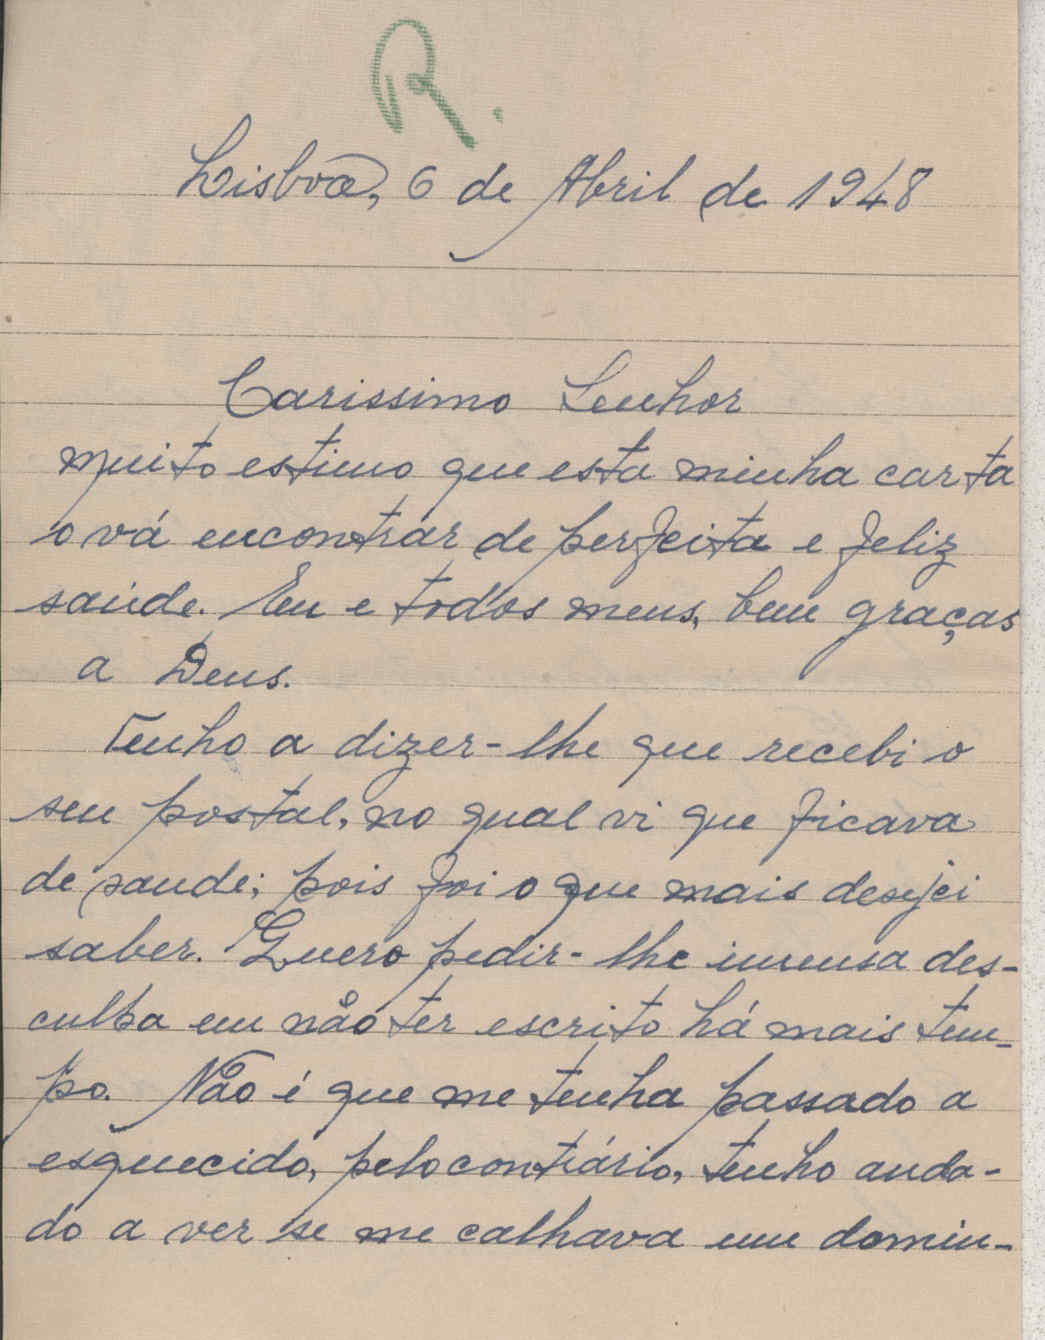 R.
Lisboa, 6 de Abril de 1948
Carissimo Senhor
muito estimo que esta minha carta
o vá encontrar de perfeita e feliz
saúde. Eu e todos meus, bem graças
a Deus.
Tenho a dizer-lhe que recebi o
seu postal, no qual vi que ficava
de saude; pois foi o que mais desejei
saber. Quero pedir-lhe imensa des-
culpa em não ter escrito há mais tem-
po. Não é que me tenha passado a
esquecido, pelo contrário, tenho anda-
do a ver se me calhava um domin-